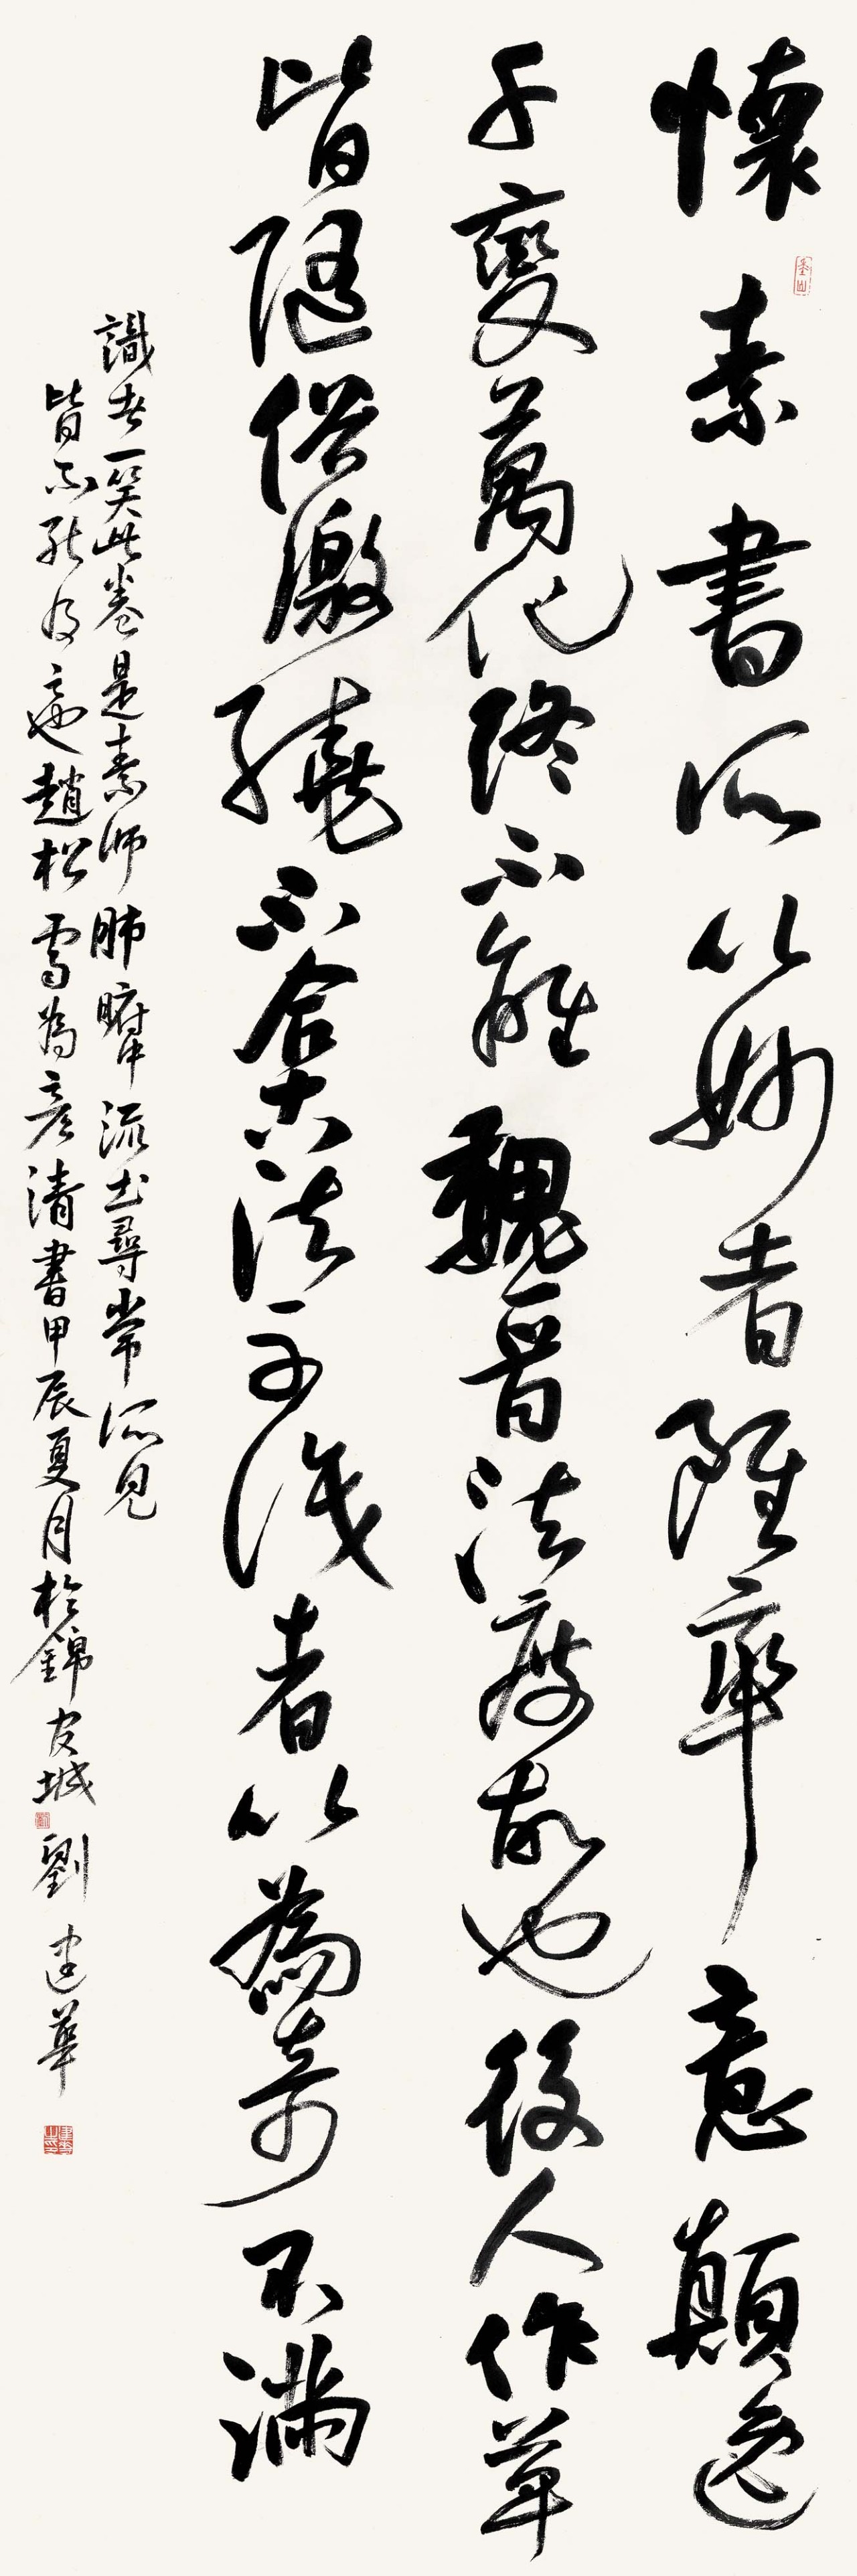 懷素書所以妙者雖率意顛逸
千變萬化終不離魏晉法度故也後人作草
皆隨俗繳繞不合古法不識者以為奇不滿
識者一笑此卷是素師肺腑中流出尋常所見
皆不能及之也趙松雪為彥清書甲辰夏月於錦官城劉建華